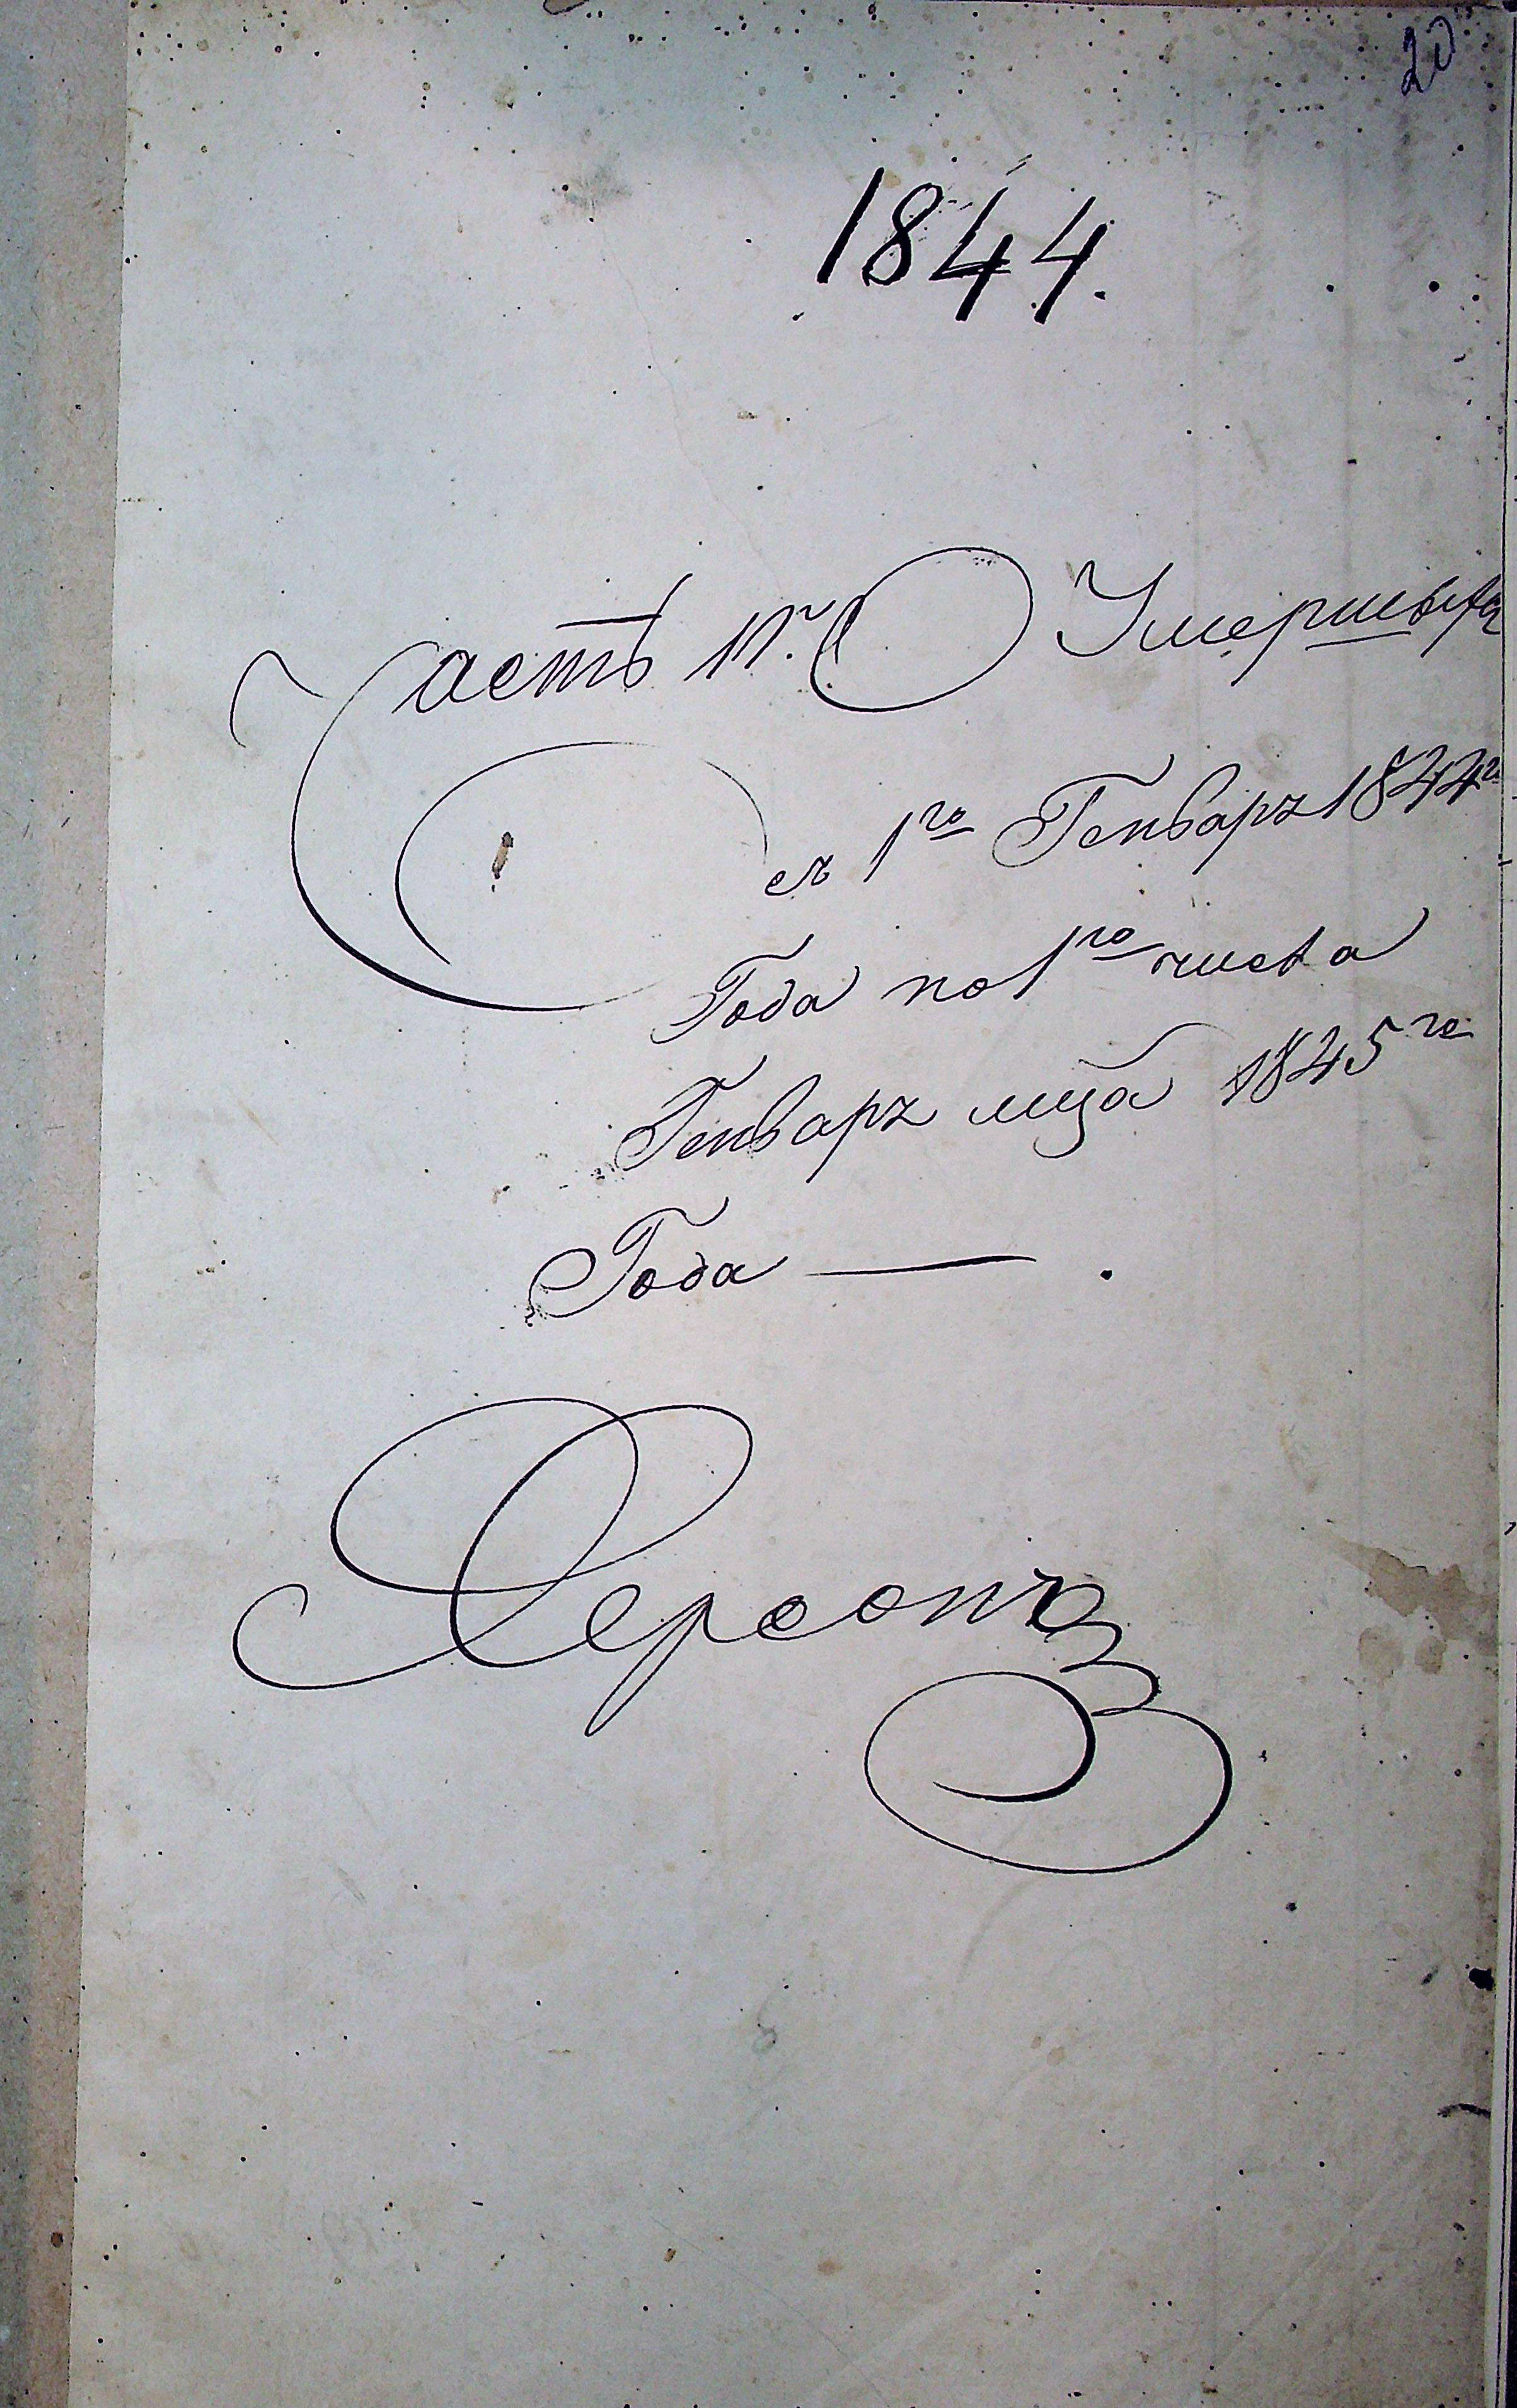 20
1844.
Часть IV. О Умершихъ
съ 1го Генваря 1844го
Года по 1го числа
Генваря мца 1845го
Года — .
Херсонъ